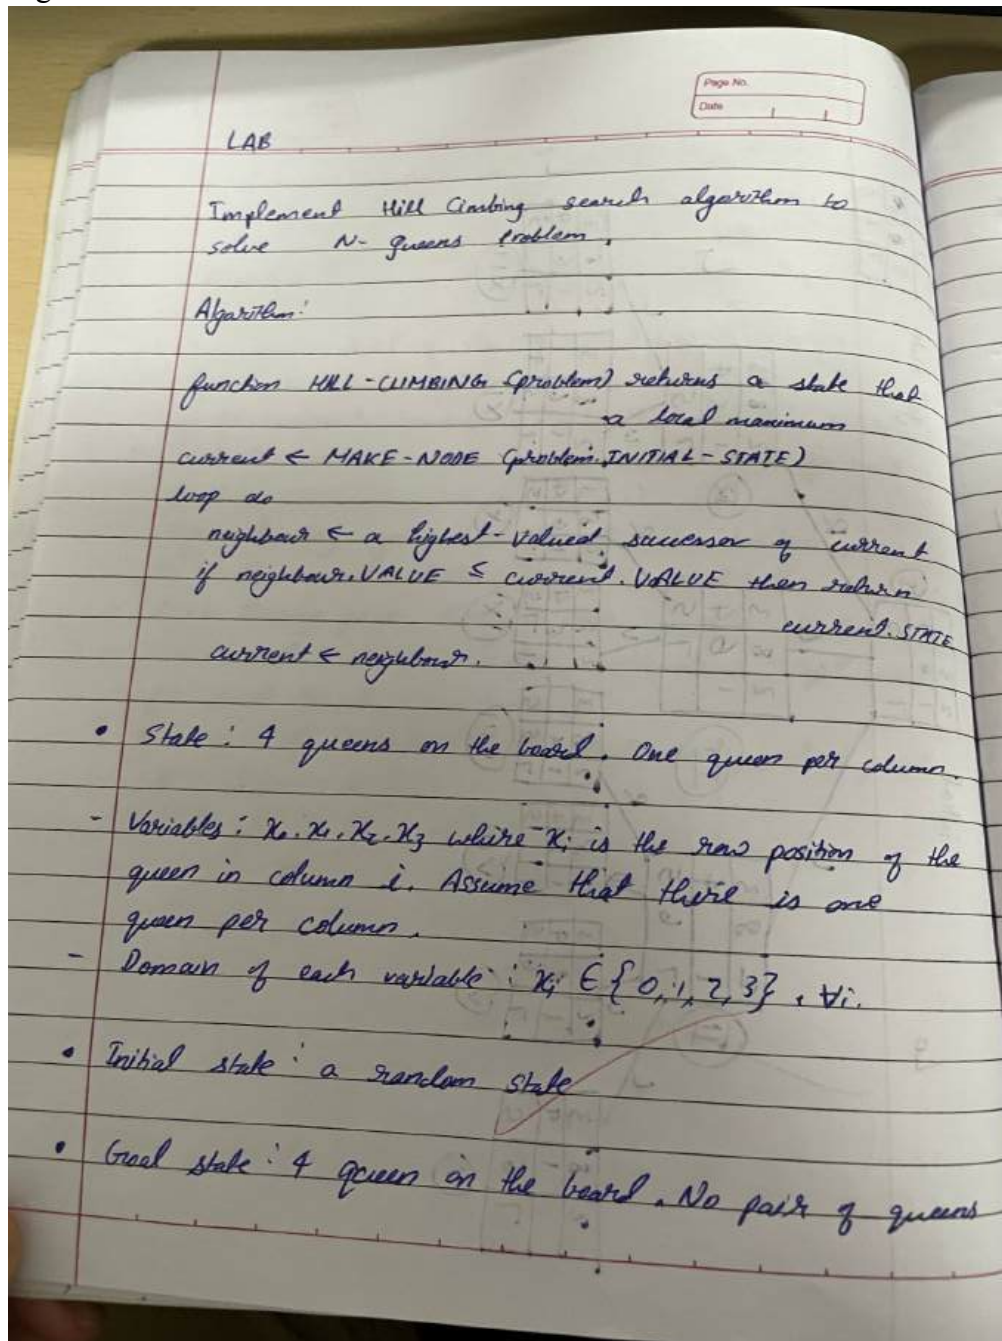 Page No.
Date
LAB
Implement Hill Cimbing search algorithm to
solve N-Queens problem.
Algorithm:
function HILL-CLIMBING (problem) returns a state that
a local maximum
current ← MAKE-NODE (problem.INITIAL-STATE)
loop do
neighbour ← a highest-valued successor of current
if neighbour.VALUE ≤ current.VALUE then return
current.STATE
current ← neighbour.
• State: 4 queens on the board. One queen per column.
- Variables: x₀, x₁, x₂, x₃ where xᵢ is the row position of the
queen in column i. Assume that there is one
queen per column.
- Domain of each variable: xᵢ ∈ {0, 1, 2, 3}, ∀i.
• Initial state: a random state
• Goal state: 4 queen on the board. No pair of queens